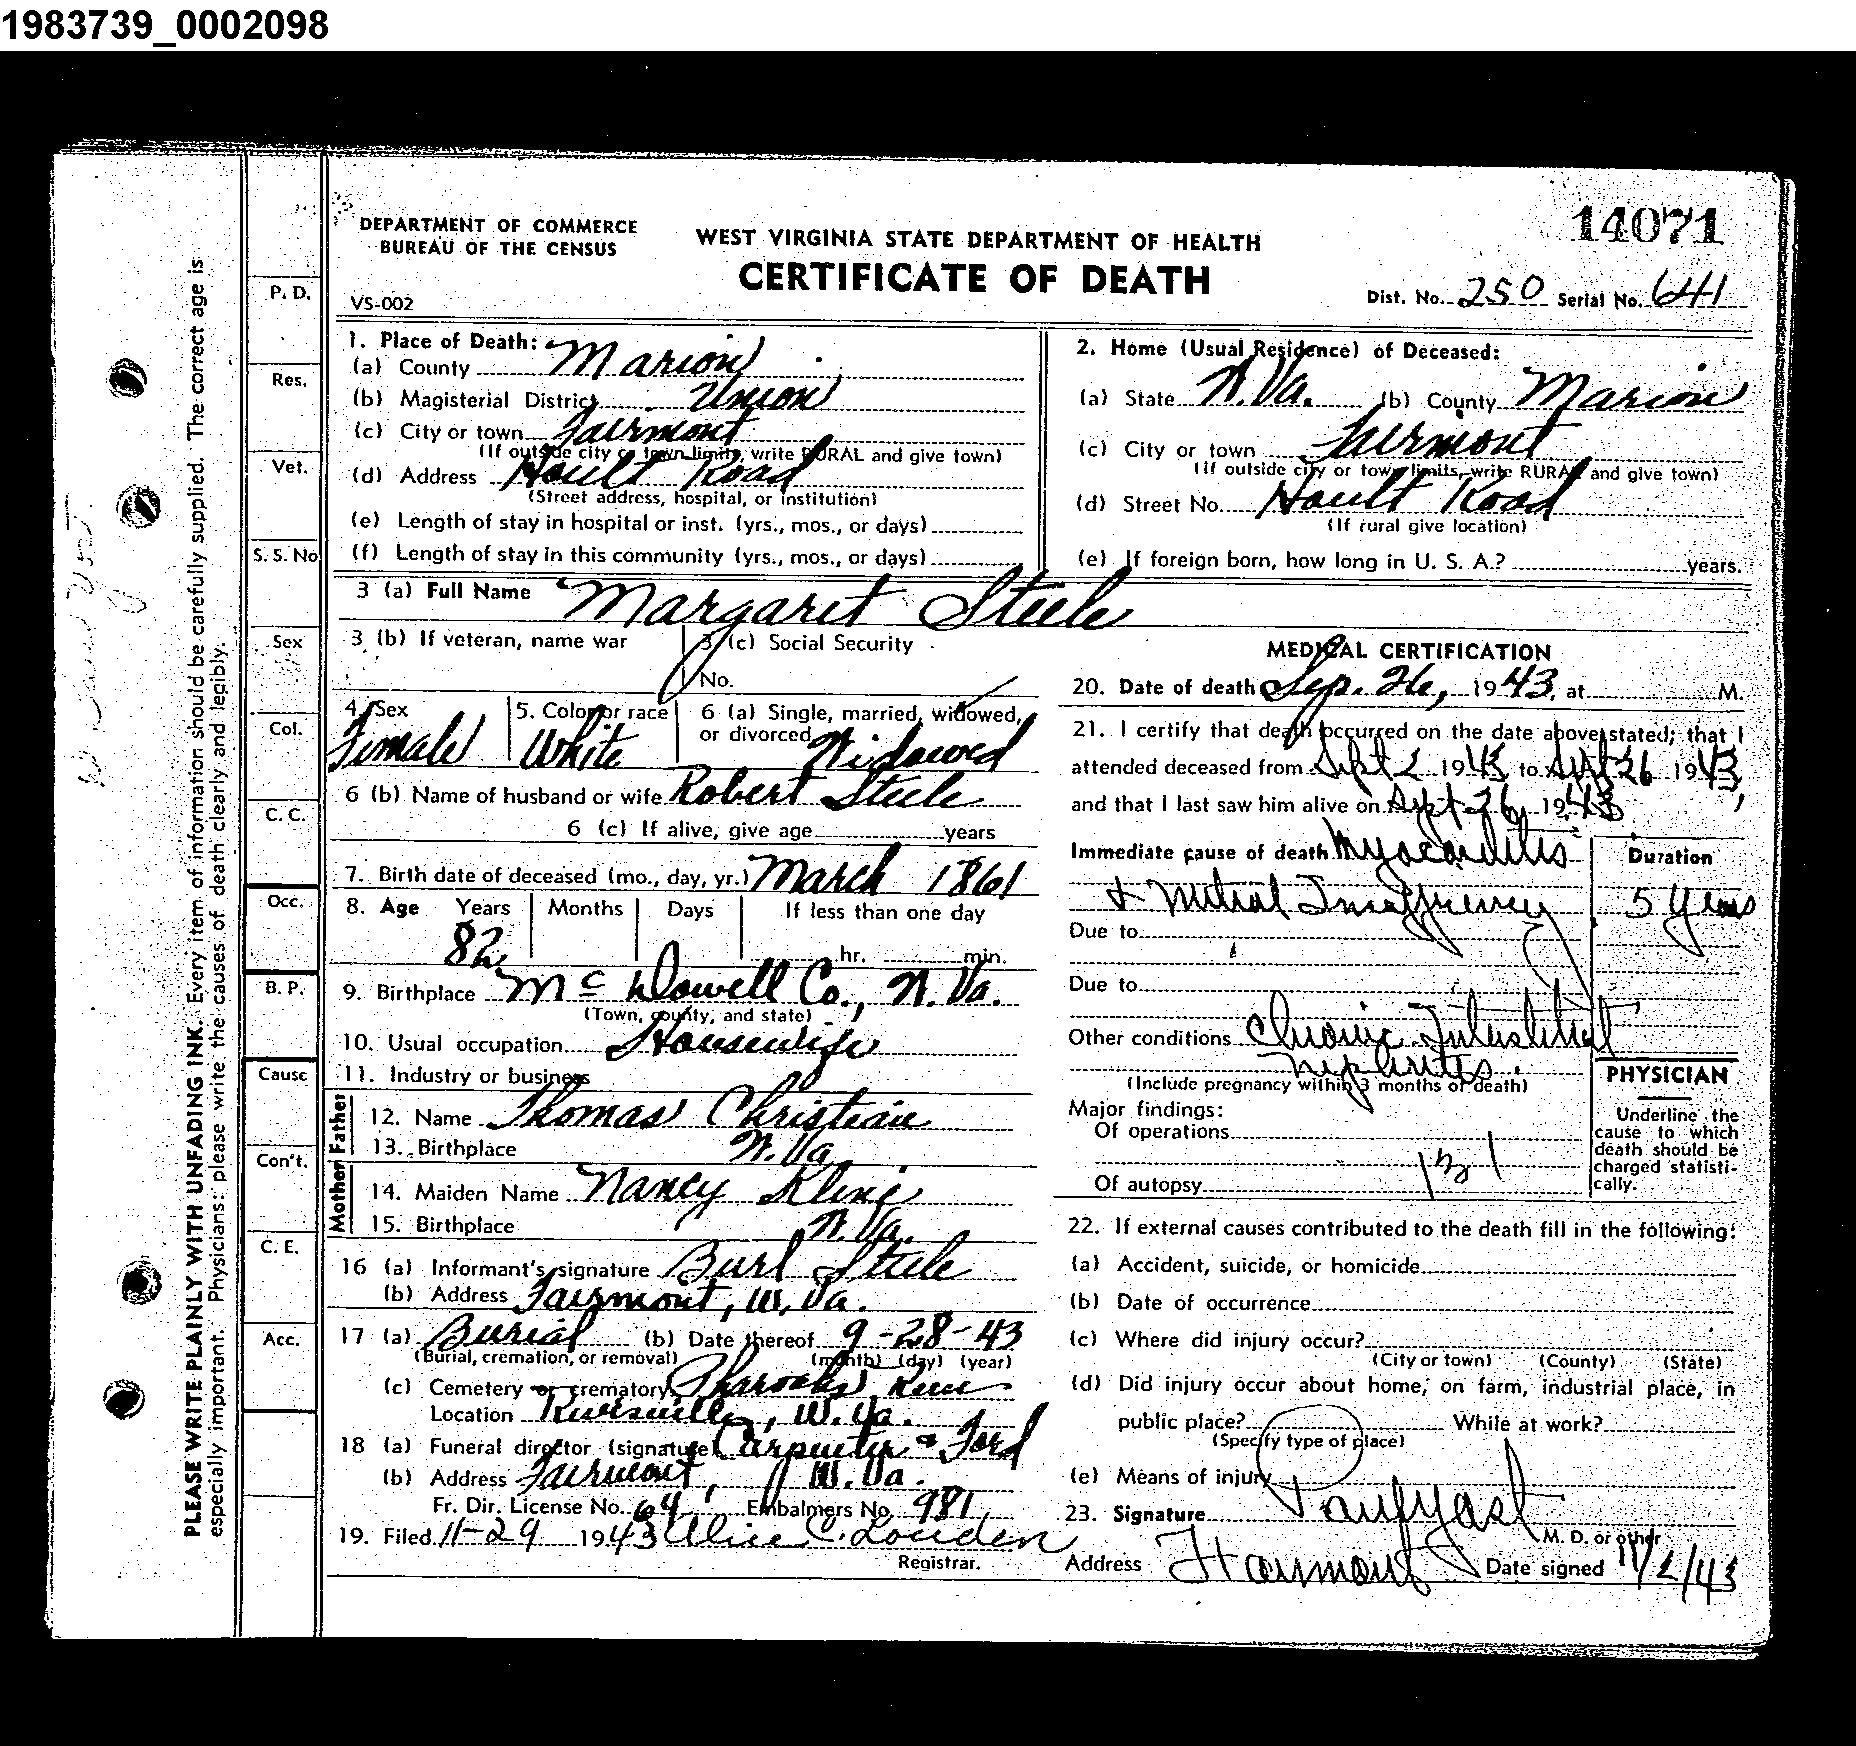 1983739_0002098
DEPARTMENT OF COMMERCE
BUREAU OF THE CENSUS
WEST VIRGINIA STATE DEPARTMENT OF HEALTH
14071
CERTIFICATE OF DEATH
VS-002
Dist. No. 250 Serial No. 641
PLEASE WRITE PLAINLY WITH UNFADING INK. Every item of information should be carefully supplied. The correct age is
especially important. Physicians: please write the causes of death clearly and legibly.
P. D.
Res.
Vet.
S. S. No
Sex
Col.
C. C.
Occ.
B. P.
Cause
Con't.
C. E.
Acc.
1. Place of Death:
(a) County Marion
(b) Magisterial District Union
(c) City or town Fairmont
(If outside city or town limits, write RURAL and give town)
(d) Address Hoult Road
(Street address, hospital, or institution)
(e) Length of stay in hospital or inst. (yrs., mos., or days)
(f) Length of stay in this community (yrs., mos., or days)
2. Home (Usual Residence) of Deceased:
(a) State W. Va. (b) County Marion
(c) City or town Fairmont
(If outside city or town limits, write RURAL and give town)
(d) Street No. Hoult Road
(If rural give location)
(e) If foreign born, how long in U. S. A.? years.
3 (a) Full Name Margaret Steele
3 (b) If veteran, name war
3 (c) Social Security
No.
4. Sex
Female
5. Color or race
White
6 (a) Single, married, widowed,
or divorced Widowed
6 (b) Name of husband or wife Robert Steele
6 (c) If alive, give age years
7. Birth date of deceased (mo., day, yr.) March 1861
8. Age Years Months Days If less than one day
82 hr. min.
9. Birthplace McDowell Co., W. Va.
(Town, county, and state)
10. Usual occupation Housewife
11. Industry or business
Father
12. Name Thomas Christian
13. Birthplace W. Va
Mother
14. Maiden Name Nancy Kline
15. Birthplace W. Va.
16 (a) Informant's signature Burl Steele
(b) Address Fairmont, W. Va.
17 (a) Burial (b) Date thereof 9-28-43
(Burial, cremation, or removal) (month) (day) (year)
(c) Cemetery or crematory Pharoahs Run
Location Rivesville, W. Va.
18 (a) Funeral director (signature) Carpenter & Ford
(b) Address Fairmont, W. Va.
Fr. Dir. License No. 64 Embalmers No. 981
19. Filed 11-29 1943 Alice C. Louden
Registrar.
MEDICAL CERTIFICATION
20. Date of death Sep. 26, 1943, at M.
21. I certify that death occurred on the date above stated; that I
attended deceased from Sept 2 1943 to Sept 26 1943,
and that I last saw him alive on Sept. 26, 1943
Immediate cause of death Myocarditis
Duration
& Mitral Insufficiency 5 years
Due to
Due to
Other conditions Chronic Interstitial
nephritis.
(Include pregnancy within 3 months of death)
Major findings:
Of operations
131
Of autopsy
PHYSICIAN
Underline the
cause to which
death should be
charged statisti-
cally.
22. If external causes contributed to the death fill in the following:
(a) Accident, suicide, or homicide
(b) Date of occurrence
(c) Where did injury occur?
(City or town) (County) (State)
(d) Did injury occur about home, on farm, industrial place, in
public place? While at work?
(Specify type of place)
(e) Means of injury
23. Signature
M. D. or other
Address Fairmont Date signed 11/2/43